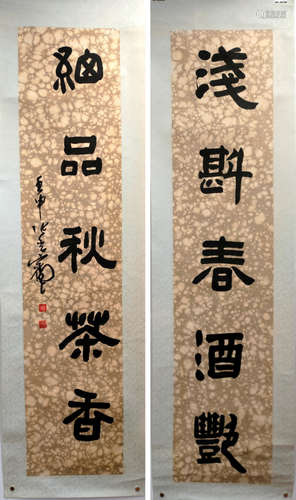 淺斟春酒艷
細品秋茶香
壬申